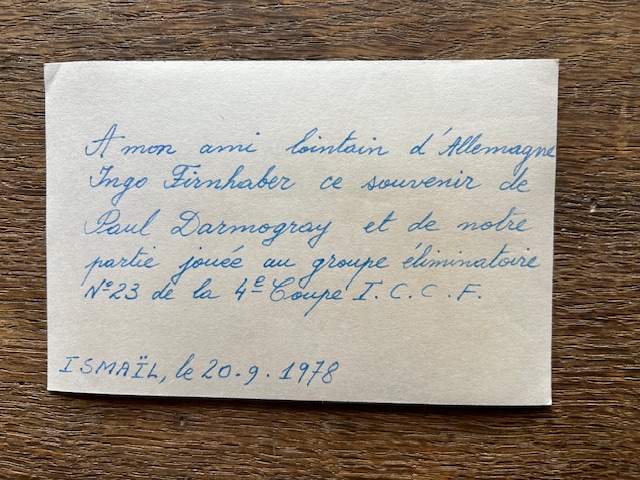 A mon ami lointain d'Allemagne
Ingo Firnhaber ce souvenir de
Paul Darmogray et de notre
partie jouée au groupe éliminatoire
Nº23 de la 4ᴱ Coupe I.C.C.F.
ISMAÏL, le 20.9.1978